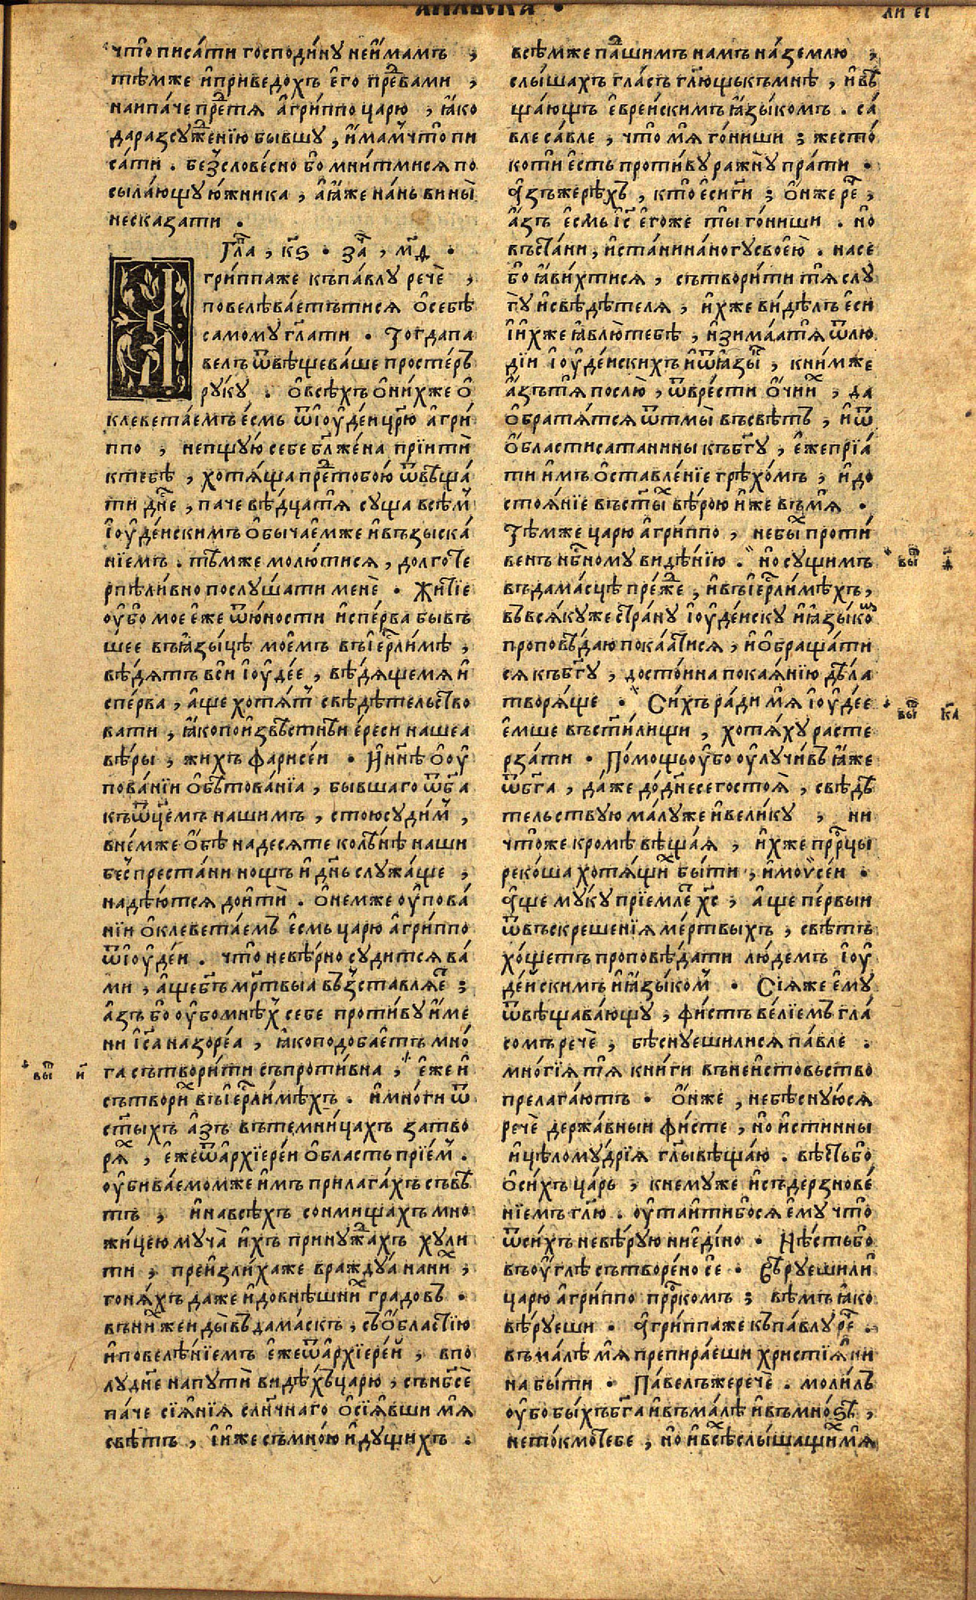 АПЛЬСКА .
ли еі
что писа́ти господи́ну неи́мамъ ,
тѣ́мже и҆приведо́хъ є҆го̀ пре́двами ,
наипа́че предтѧ̀ а҆гри́ппо царю̀ , ꙗ҆́ко
даразсуже́нїю бы́вшу , и҆́мамъ что̀ пи
са́ти . без̾слове́сно бо мни́тмисѧ по
сыла́ющу ю҆́жника , а҆ ꙗ҆́же на́нь вины̀
несказа́ти .
Гла̀ , к҃ѕ . за̀ , м҃д .
гри́ппаже къпа́влу речѐ ,
повелѣва́еттисѧ ѡ҆себѣ̀
самому̀ гл҃ати . Тогда̀ па
велъ ѿвѣщева́ше просте́ръ
ру́ку . ѡ҆всѣ́хъ ѡ҆ни́хже ѡ҆
клевета́емъ є҆́смь ѿїꙋде́и цр҃ю̀ а҆гри́
ппо , непщу́ю себѐ бл҃же́на прїитѝ
ктебѣ̀ , хотѧ́ща предтобо́ю ѿвѣща́
ти дне́ , па́че вѣ́дуща тѧ̀ су́ща всѣ́м
їꙋде́искимъ ѡ҆быча́емже и҆взыска́
нїемъ . тѣ́мже молю́тисѧ , долготе
рпѣли́вно послу́шати менѐ . Житїе
ꙋ҆́бо моѐ є҆́же ѿю҆́ности и҆спе́рва бы́въ
шее въꙗ҆зы́цѣ мое́мъ въїер҃ли́мѣ ,
вѣ́дѧтъ всѝ їꙋде́е , вѣ́дѧщемѧ и҆
спе́рва , а҆́ще хотѧ́т свѣдѣ́тельство
вати , ꙗ҆́копоизвѣ́стнѣи є҆́реси на́шеа
вѣ́ры , жи́хъ фарисе́и . И҆ нн҃ѣ ѡ҆ꙋ҆
пова́нїи ѡ҆бѣтова́нїа , бы́вшаго ѿбг҃а
къѿц҃емъ на́шимъ , стою̀суди́м ,
вне́мже ѻ҆́бѣ на́десѧте колѣ́нѣ на́ши
беспреста́ни но́щь и҆ дн҃ь служа́ще ,
надѣ́ютсѧ доитѝ . ѡ҆не́мже ꙋ҆пова́
нїи ѡ҆клевета́емъ є҆́смь царю̀ а҆гри́ппо
ѿїꙋде́и . что̀ невѣ́рно су́дитсѧ ва́
ми , а҆́щебг҃ъ мр҃твыа въз̾ставлѧ́е ;
а҆́зъ бо ꙋ҆́бо мнѣ́х себѐ проти́ву и҆́ме
ни і҆с҃а назоре́а , ꙗ҆́коподоба́етъ мно́
га сътвори́ти съпроти́вна , є҆́же и҆
сътвори́х въїер҃ли́мѣхъ . и҆мно́ги ѿ
ст҃ы́хъ а҆́зъ въ темни́цахъ затво
рѧ́х , є҆́жеѿархїере́и ѻ҆́бласть прїе́м .
ꙋ҆бива́емомже и҆́мъ прилага́хъ съвѣ́
тъ , и҆навсѣ́хъ со́нмищахъ мно
жи́цею му́ча и҆́хъ прину́жахъ ху́ли
ти , преизли́хаже вражду́а нани́х ,
гонѧ́хъ да́же и҆довнѣ́шних градо́въ .
въни́хже и҆ды́й въдама́скъ , съѻ҆́бластїю
и҆повелѣ́нїемъ є҆́жеѿархїере́и , впо
лу́дне напутѝ ви́дѣхъ царю̀ , съ нб҃сѐ
па́че сїѧ́нїѧ сл҃нечнаго ѡ҆сїѧ́вши мѧ̀
свѣ́тъ , и҆ и҆́же съмно́ю и҆ду́щихъ .
всѣ́мже па́дшимъ на́мъ на́землю ,
слы́шахъ гла́съ гл҃ющь къмнѣ̀ , и҆вѣ
ща́ющъ є҆вре́йскимъ ꙗ҆зы́комъ . са́
вле са́вле , что̀ мѧ̀ го́ниши ; жесто́
ко ти є҆́сть проти́ву ражну̀ пра́ти .
А҆зъ же рѣ́хъ , кто̀ є҆сѝ ги ; ѻ҆́нже ре ,
а҆́зъ є҆́смь і҆с҃ є҆го́же ты̀ го́ниши . но̀
въста́ни , и҆ста́ни нано́гу своє́ю . насе
бо ꙗ҆ви́хтисѧ , сътвори́ти тѧ̀ слу
гу̀ и҆свѣдѣ́телѧ , и҆́хже ви́дѣлъ є҆сѝ
и҆ и҆́хже ꙗ҆влю̀тебѣ̀ , и҆зима́а тѧ̀ ѿлю
ді́и їꙋде́искихъ и҆ѿꙗ҆зы́к , кни́мже
а҆́зътѧ̀ послю̀ , ѿвре́сти ѻ҆́чи и҆х , да
ѡ҆братѧ́тсѧ ѿтмы̀ въсвѣ́тъ , и҆ѿ
ѻ҆́бласти сатанины къбг҃у , є҆́жепрїа́
ти и҆́мъ ѡ҆ставле́нїе грѣхо́мъ , и҆до
стоѧ́нїе въсты́х вѣ́рою и҆́же въмѧ̀ .
Тѣ́мже царю̀ а҆гри́ппо , небы́х проти́
венъ нб҃ному видѣ́нїю . но̀су́щимъ
въдама́сцѣ пре́же , и҆въїер҃ли́мѣхъ ,
въвсѧ́кужє страну̀ їꙋде́иску и҆ꙗ҆зы́ко
проповѣ́даю пока́атисѧ , и҆ѡ҆браща́ти
сѧ къбг҃у , досто́ина покаѧ́нїю дѣ́ла
творѧ́ще . Си́хъ ра́ди мѧ̀ їꙋде́е
є҆́мше въсти́лищи , хотѧ́ху расте
рза́ти . По́мощь ꙋ҆́бо ꙋ҆лучи́въ ꙗ҆́же
ѿбг҃а , да́же до́днесего стоѧ̀ , свѣдѣ́
тельствую ма́лу же и҆вели́ку , ни
что́же кромѣ̀ вѣща́ѧ , и҆́хже пр҃рцы
реко́ша хотѧ́щих бы́ти , и҆моѷсе́и .
А҆ще му́ку прїе́млет хс҃ , а҆́ще пе́рвыи
ѿвъскреше́нїѧ ме́ртвыхъ , свѣ́тъ
хо́щетъ проповѣ́дати лю́демъ їꙋ
де́йскимъ и҆ꙗ҆зы́ком . Сїѧ́же є҆му̀
ѿвѣщава́ющу , фи́стъ ве́лїемъ гла́
сомъ речѐ , бѣсну́ешилисѧ па́вле .
мно́гїѧ тѧ̀ кни́ги въ неи́стовьство
прелага́ютъ . Ѻ҆́нже , небѣсну́юсѧ
речѐ держа́вныи фи́сте , но̀ и҆́стинны
и҆цѣлому́дрїѧ гл҃ы вѣща́ю . вѣ́стьбо
ѡ҆си́хъ ца́рь , кнему́же и҆съдерзнове́
нїемъ гл҃ю . ꙋ҆таити́босѧ є҆му̀ что̀
ѿси́хъ невѣ́рую ниеди́но . Нѣ́стьбо
въ ꙋ҆́глѣ сътворе́но сѐ . Вѣ́руешили
царю̀ а҆гри́ппо пр҃ркомъ ; вѣ́мъ ꙗ҆́ко
вѣ́руеши . А҆гри́ппаже къпа́влу ре .
въма́лѣ мѧ̀ препира́еши христїѧ́ни
на бы́ти . Па́велъже речѐ . моли́лъ
ꙋ҆́бо бы́хъ бг҃а и҆въма́лѣ и҆въмно́ѕѣ ,
нето́кмо тебѐ , но̀ и҆всѣ́ слы́шащих мѧ̀